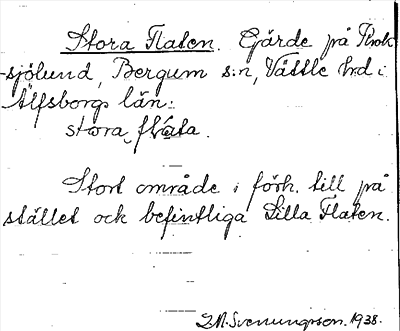 Stora Flaten. Gärde på Stok
-sjölund, Bergum s:n, Vättle hrd i
Älfsborgs län:
stora flata.
Stort område i förh. till på
stället och befintliga Lilla Flaten.
Svenungsson. 1938.